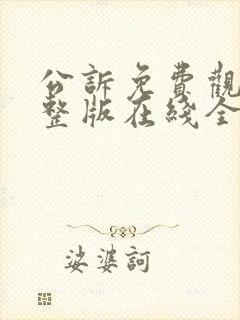 公訴免費觀
整版在綫全
娑婆訶